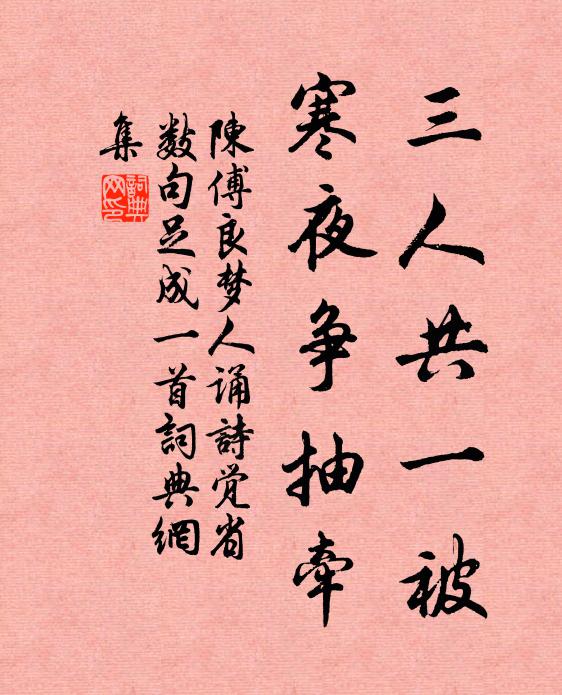 三人共一被
寒夜争抽牵
陳傅良梦人诵詩觉省
数句足成一首詞典網
集
詞典
网印